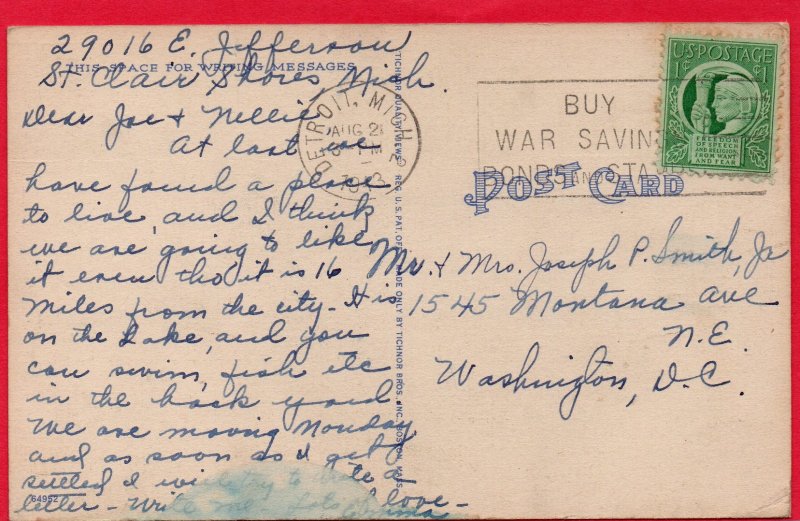 29016 E. Jefferson
THIS SPACE FOR WRITING MESSAGES
St. Clair Shores, Mich.
Dear Joe & Nellie,
At last we
have found a place
to live, and I think
we are going to like
it even tho it is 16
miles from the city - It is
on the Lake, and you
can swim, fish etc
in the back yard.
We are moving Monday
and as soon as I get
settled I will try to write a
letter - Write me Lots of love -
Emma
64952
TICHNOR QUALITY VIEWS REG. U.S. PAT. OFF. MADE ONLY BY TICHNOR BROS., INC., BOSTON, MASS.
DETROIT, MICH.
AUG 21
PM
1943
BUY
WAR SAVIN
BONDS AND STAM
U.S. POSTAGE
1¢ 1
FREEDOM
OF SPEECH
AND RELIGION,
FROM WANT
AND FEAR
POST CARD
Mr. & Mrs. Joseph P. Smith, Jr
1545 Montana Ave
N.E.
Washington, D.C.